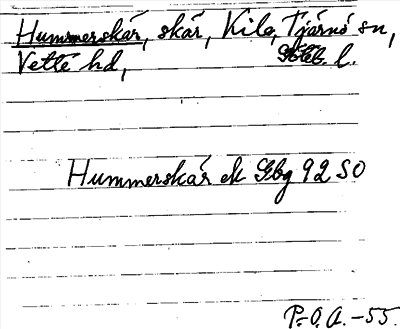 Hummerskär, skär, Kile, Tjärnö sn,
Vette hd, Göteb. l.
Hummerskär ek Gbg 92 SO
P.O.A. -55.